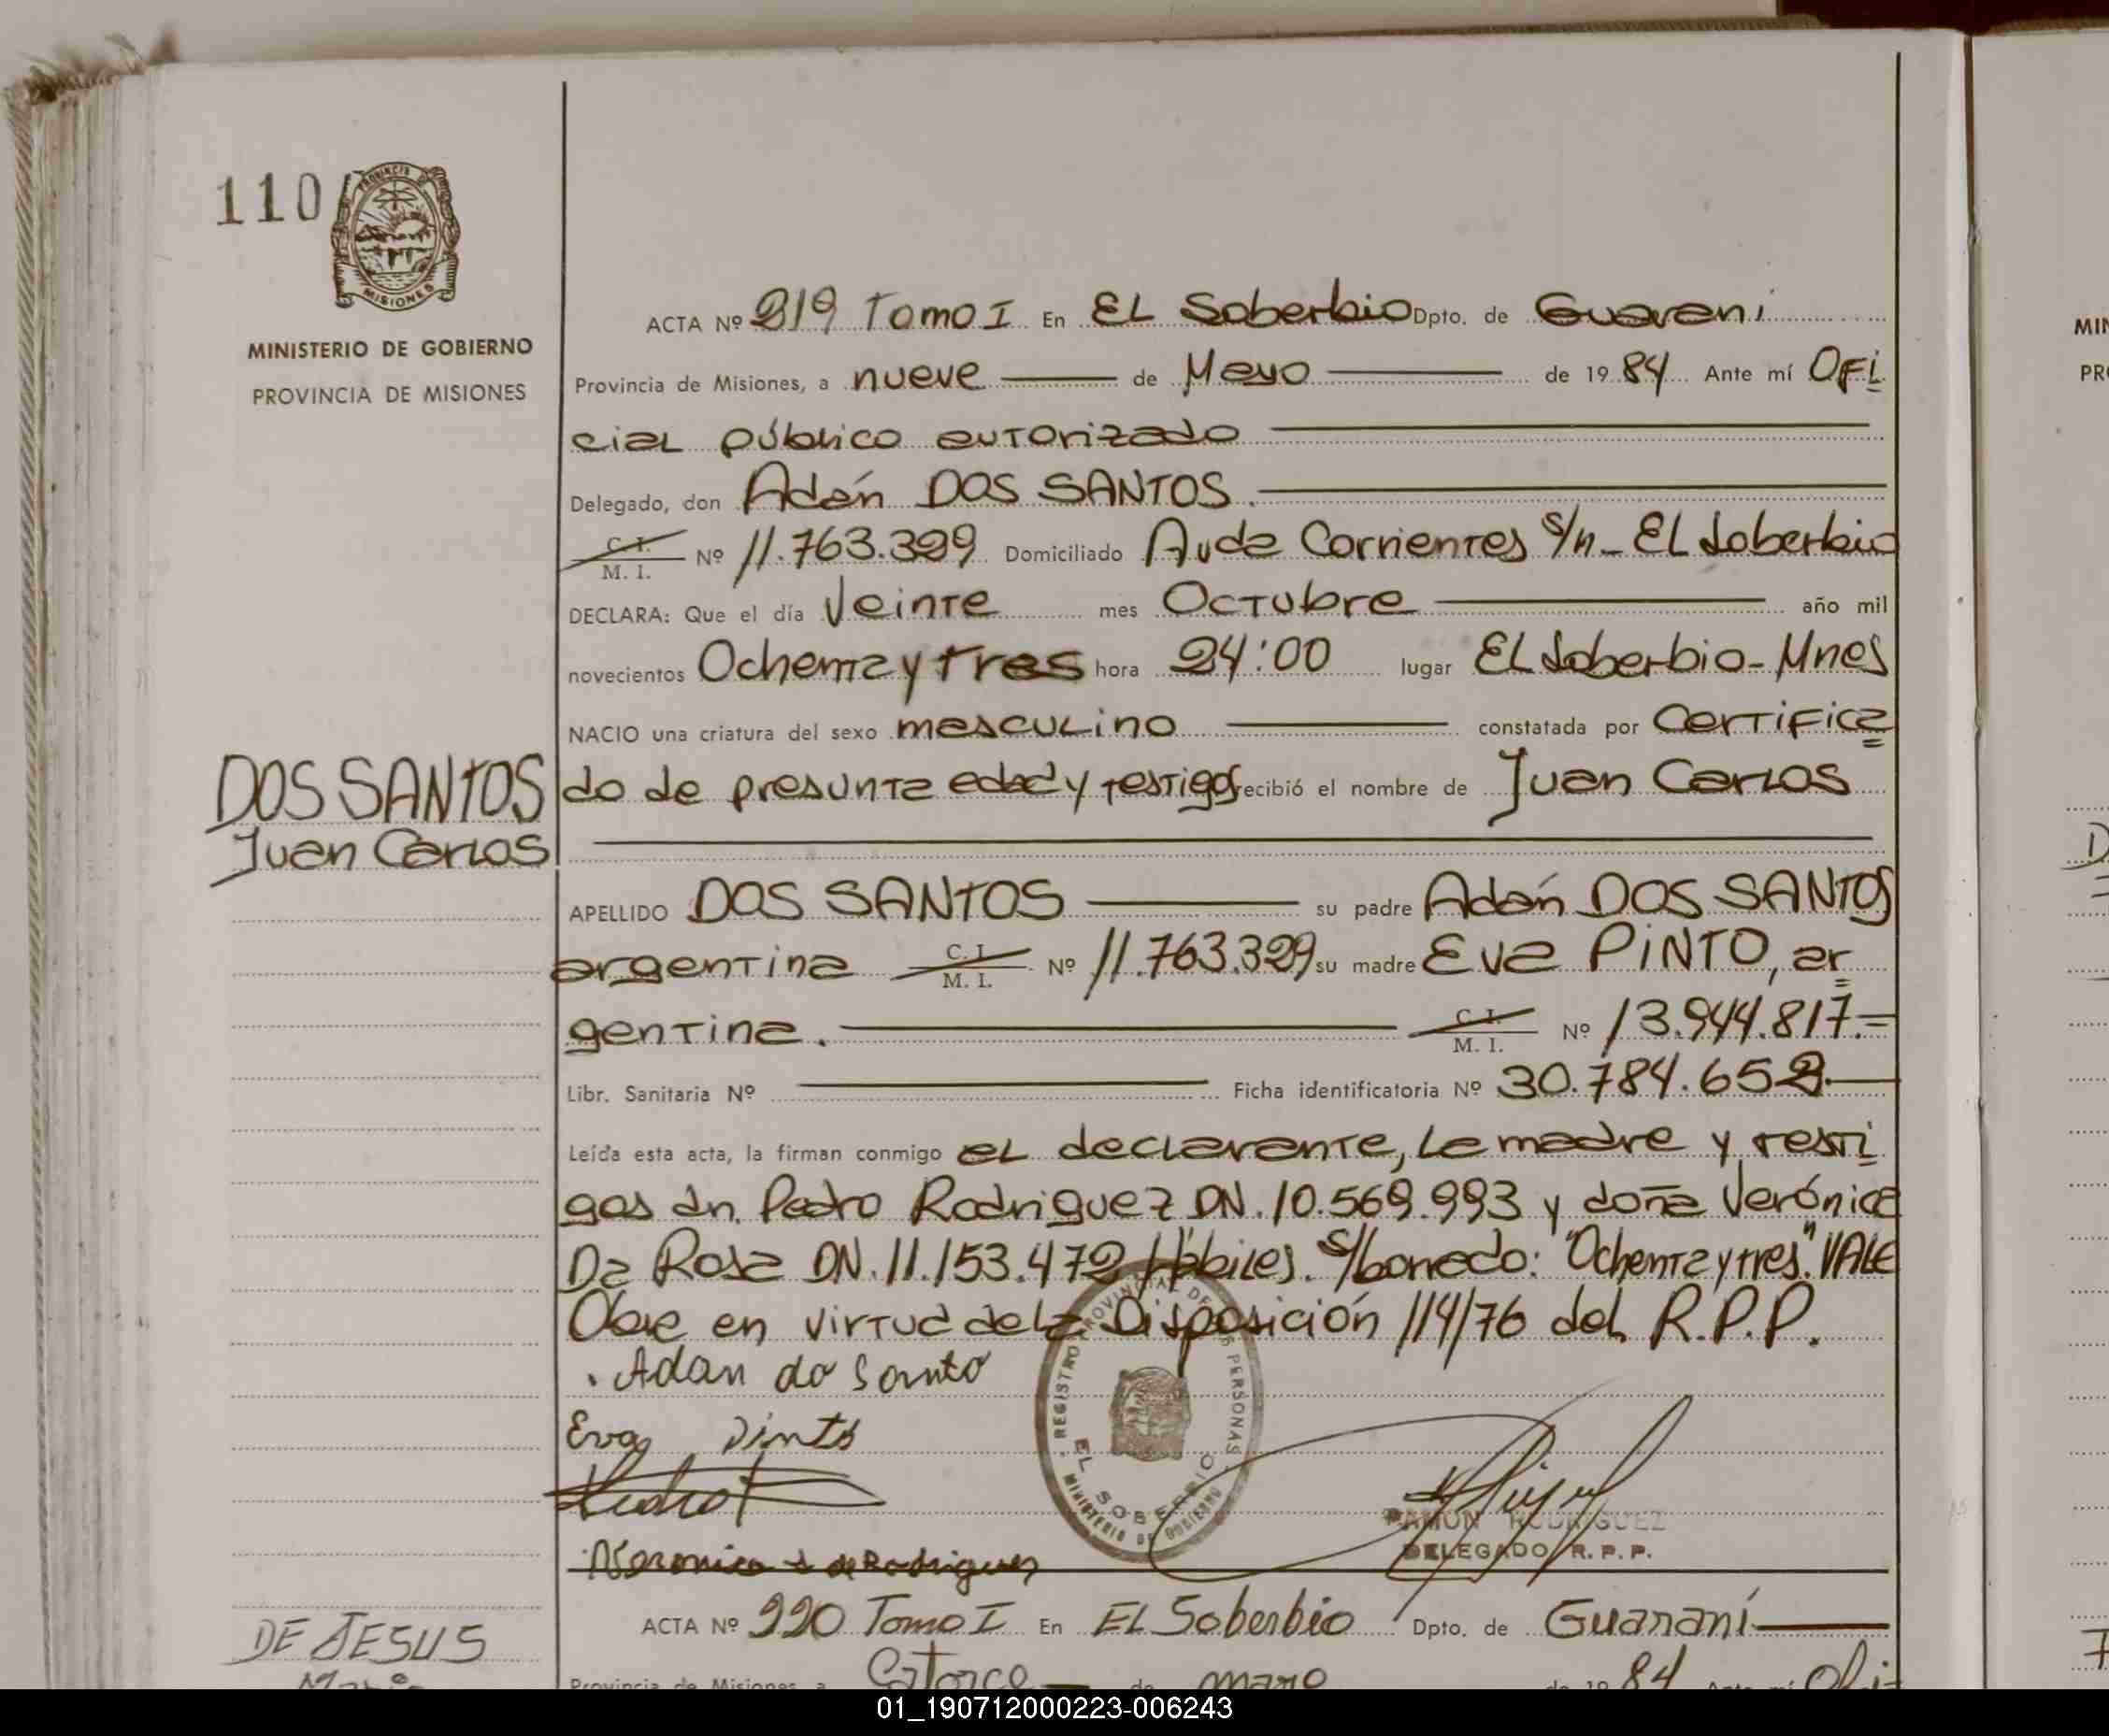 110
PROVINCIA DE
MISIONES
MINISTERIO DE GOBIERNO
PROVINCIA DE MISIONES
ACTA Nº 219 Tomo I En EL Soberbio Dpto. de Guaraní
Provincia de Misiones, a nueve de Mayo de 1984 Ante mí OFi
cial público autorizado
Delegado, don Adán DOS SANTOS.
C. I.
M. I. Nº 11.763.329 Domiciliado Avda Corrientes s/n - EL Soberbio
DECLARA: Que el día Veinte mes Octubre año mil
novecientos Ochenta y tres hora 24:00 lugar EL Soberbio - Mnes
NACIO una criatura del sexo masculino constatada por Certifica
do de presunta edad y testigos recibió el nombre de Juan Carlos
DOS SANTOS
Juan Carlos
APELLIDO DOS SANTOS su padre Adán DOS SANTOS
argentina C. I.
M. I. Nº 11.763.329 su madre Eva PINTO, ar
gentina. C. I.
M. I. Nº 13.944.817.=
Libr. Sanitaria Nº Ficha identificatoria Nº 30.784.652.
Leída esta acta, la firman conmigo el declarante, la madre y testi
gos dn. Pedro Rodriguez DN. 10.569.993 y doña Verónica
Da Rosa DN. 11.153.472 Hábiles. S/borrado: "Ochenta y tres". VALE
Obre en virtud de la Disposición 114/76 del R.P.P.
. Adan do santo
Eva Pinto
Pedro
Veronica d de Rodriguez
REGISTRO PROVINCIAL DE LAS PERSONAS
EL SOBERBIO
MINISTERIO DE GOBIERNO
RAMON RODRIGUEZ
DELEGADO R. P. P.
ACTA Nº 220 Tomo I En EL Soberbio Dpto. de Guaraní
DE JESUS
Provincia de Misiones a Catorce de mayo de 1984 Ante mí Ofi
MIN
PR
01_190712000223-006243